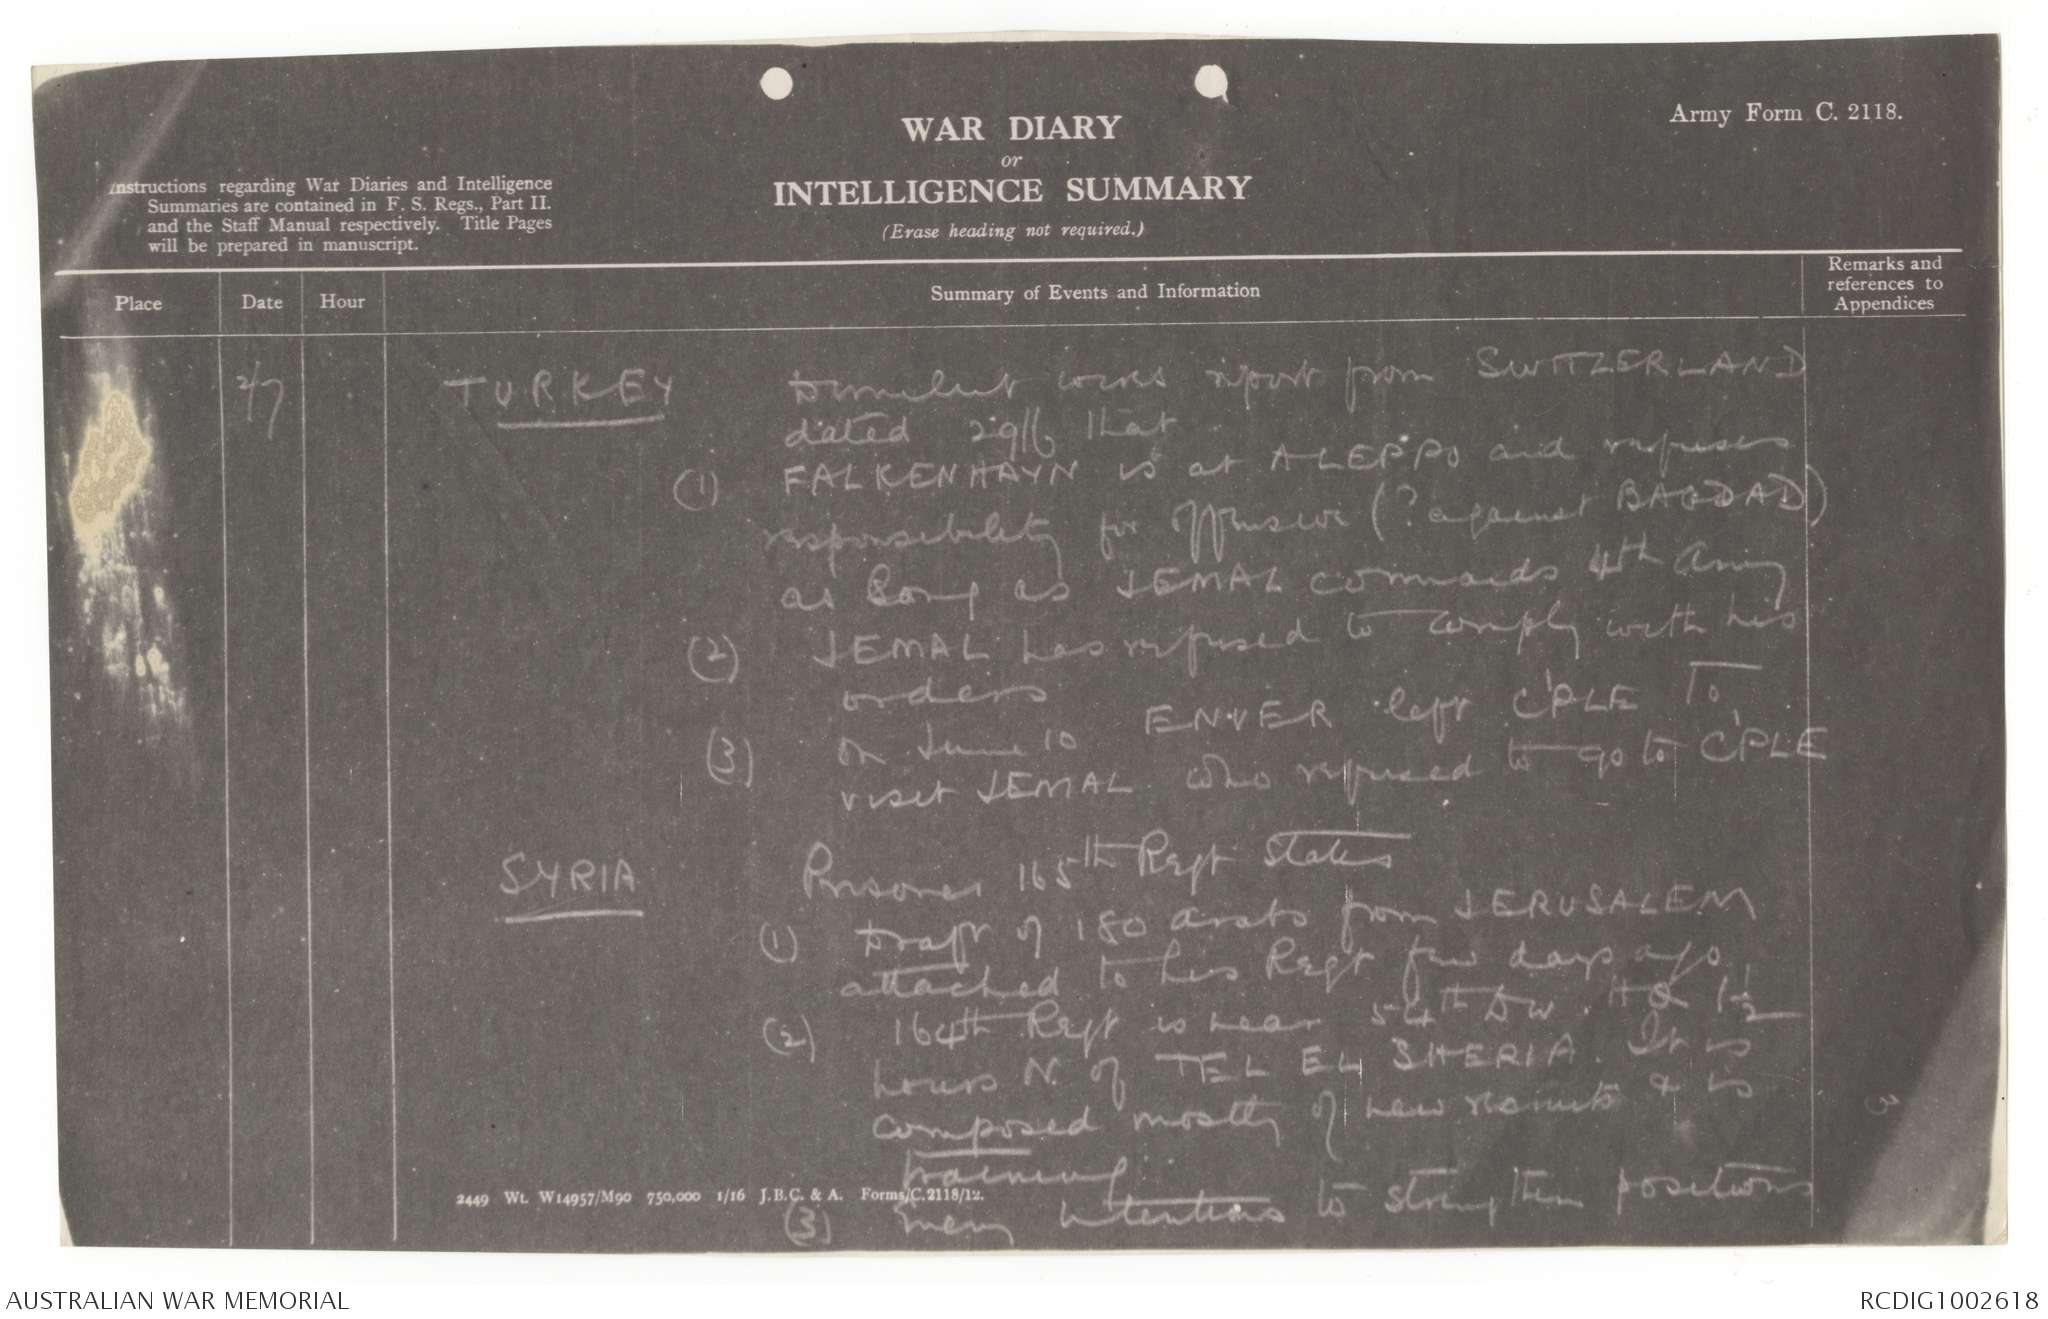 Army Form C. 2118.
WAR DIARY
or
INTELLIGENCE SUMMARY
(Erase heading not required.)
Instructions regarding War Diaries and Intelligence
Summaries are contained in F. S. Regs., Part II.
and the Staff Manual respectively. Title Pages
will be prepared in manuscript.
Place
Date
Hour
Summary of Events and Information
Remarks and
references to
Appendices
2/7
TURKEY
report from SWITZERLAND
dated 29/6 that
(1) FALKENHAYN is at ALEPPO and refuses
responsibility for offensive (? against BAGDAD)
as long as JEMAL commands 4th Army
(2) JEMAL has refused to comply with his
orders
(3) On June 10 ENVER left C'PLE to
visit JEMAL who refused to go to C'PLE
SYRIA
Prisoner 165th Regt states
(1) Draft of 180 arabs from JERUSALEM
attached to his Regt few days ago
(2) 164th Regt is near 54th Div. HQ 1½
hours N of TEL EL SHERIA. It is
composed mostly of new recruits & is
training
(3) Enemy intentions to strengthen positions
2449 Wt. W14957/M90 750,000 1/16 J.B.C. & A. Forms/C.2118/12.
AUSTRALIAN WAR MEMORIAL
RCDIG1002618